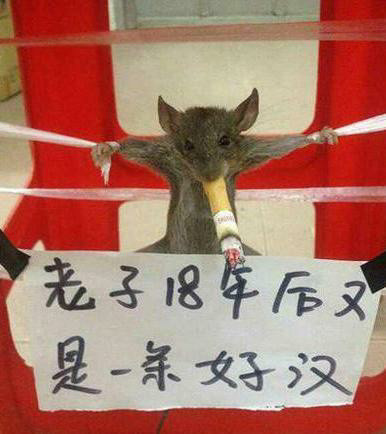 老子18年后又
是一条好汉